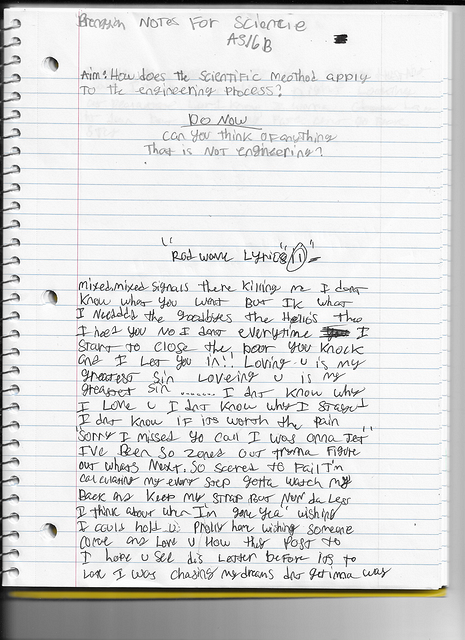 NOTES FOR Sciencie
AS16B
Aim: How does the scientific meathod apply
To the engineering process?
Do Now
can you think of anything
That is NOT engineering?
"Rod wave Lyrics" (1)
mixed,mixed signals there killing me I dont
know what you want But IK what
I needdda the goodbyes the Hello's the
I need you no I dont everytime I
start to close the door you knock
and I let you in!! Loving u is my
greatest sin Loveing u is my
greatest sin ....... I dnt know why
I Love u I dnt know why I stayed
I dnt know if its worth the pain
"Sorry I missed yo call I was onna Jet"
I've Been so zoned out tryna Figure
out whats Next. So scared to fail I'm
calculating my every step gotta watch my
Back and keep my strap But Nun da Less
I think about when I'm gone yea' wishing
I could hold u: Prolly here wishing someone
come and Love u How they Post to
I hope u see dis Letter before its to
Late I was chasing my dreams dnt get inna way